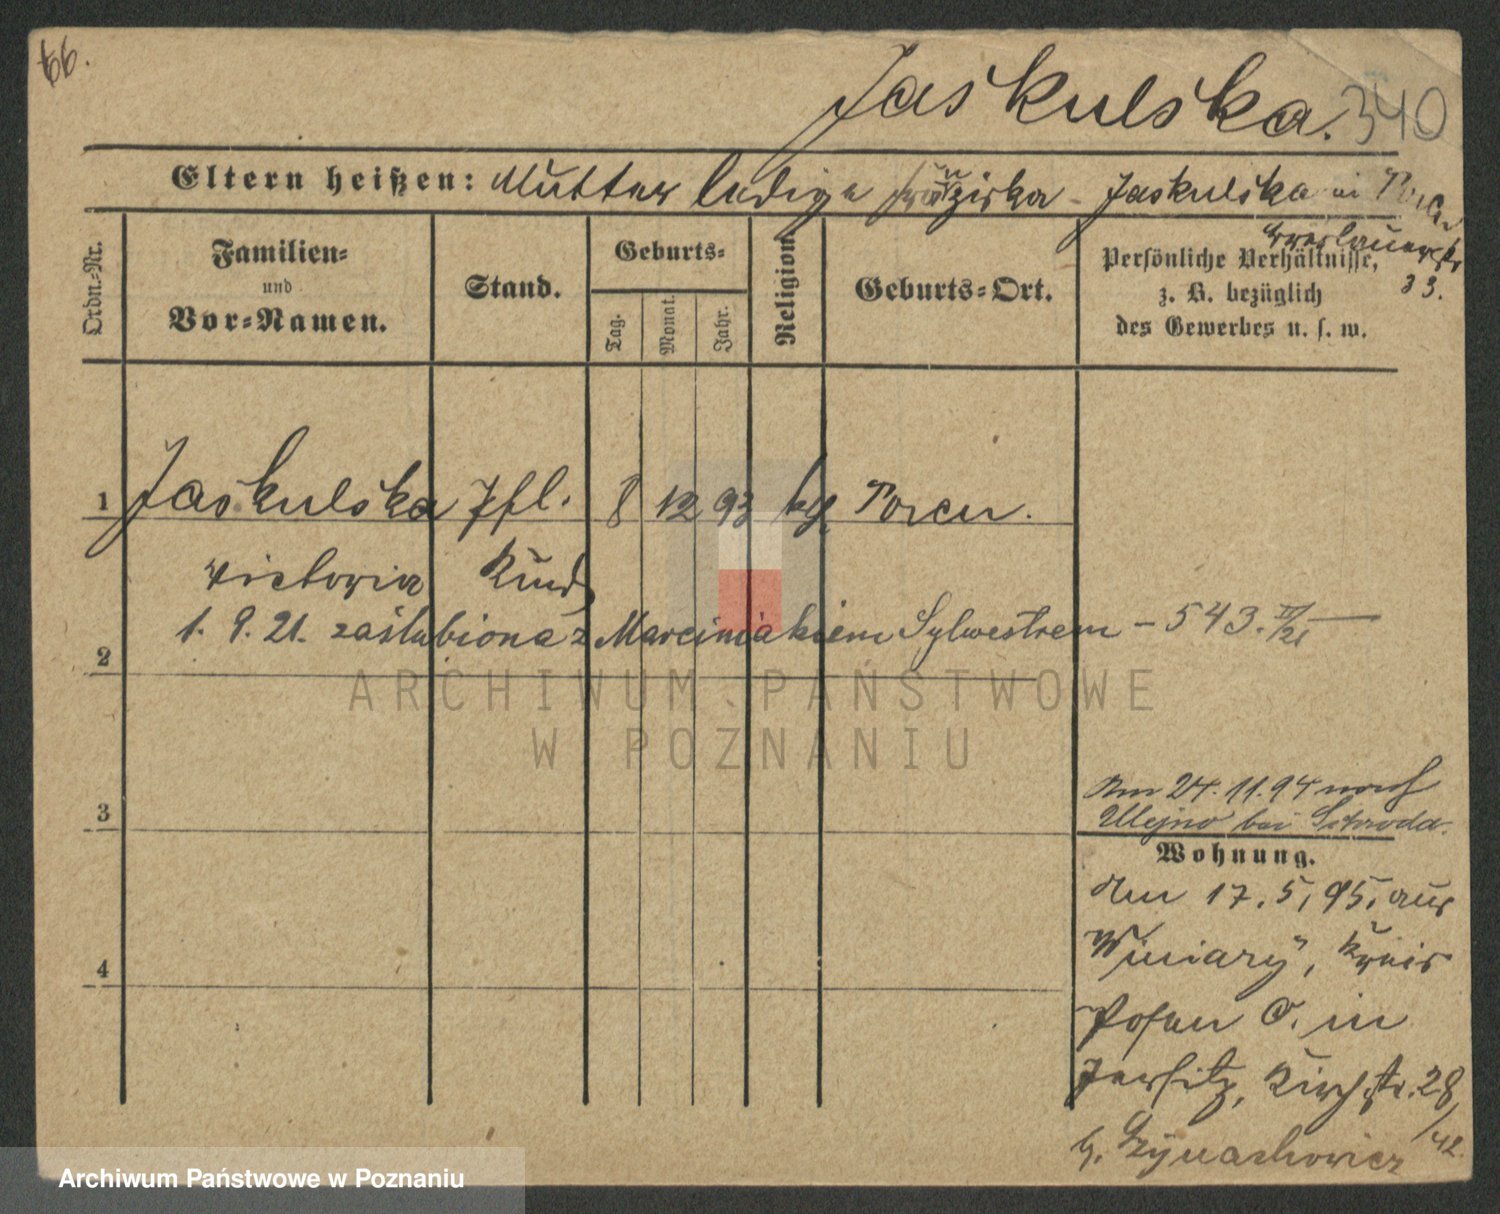 66.
Jaskulska. 340
Eltern heißen: Mutter ledige Jaskulska in Posen
Breslauerstr
33.
Ordn.-Nr.
Familien-
und
Vor-Namen.
Stand.
Geburts-
Tag.
Monat.
Jahr.
Religion.
Geburts-Ort.
Persönliche Verhältnisse,
z. B. bezüglich
des Gewerbes u. s. w.
1 Jaskulska Pfl. 8 12 93 kg Posen.
Victoria Kind
1. 9. 21. zaślubiona z Marciniakiem Sylwestrem – 543. IV/21
2
ARCHIWUM PAŃSTWOWE
W POZNANIU
Am 24. 11. 94 nach
3 Ulejno bei Schroda.
Wohnung.
Am 17. 5. 95, aus
4 Winiary, Kreis
Posen O. in
Jersitz, Kirchstr. 28
b.
/42.
Archiwum Państwowe w Poznaniu